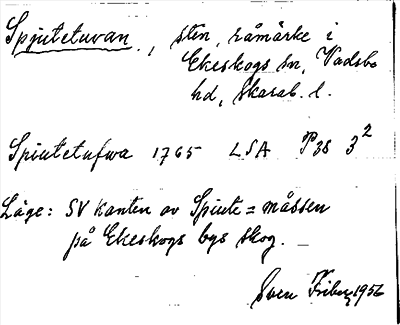 Spjutetuvan, sten, råmärke i
Ekeskogs sn, Vadsbo
hd, Skarab. l.
Spiutetufwa 1765 LSA P38 3²
Läge: SV kanten av Spiute=måssen
på Ekeskogs bys skog.
Sven Friberg 1956